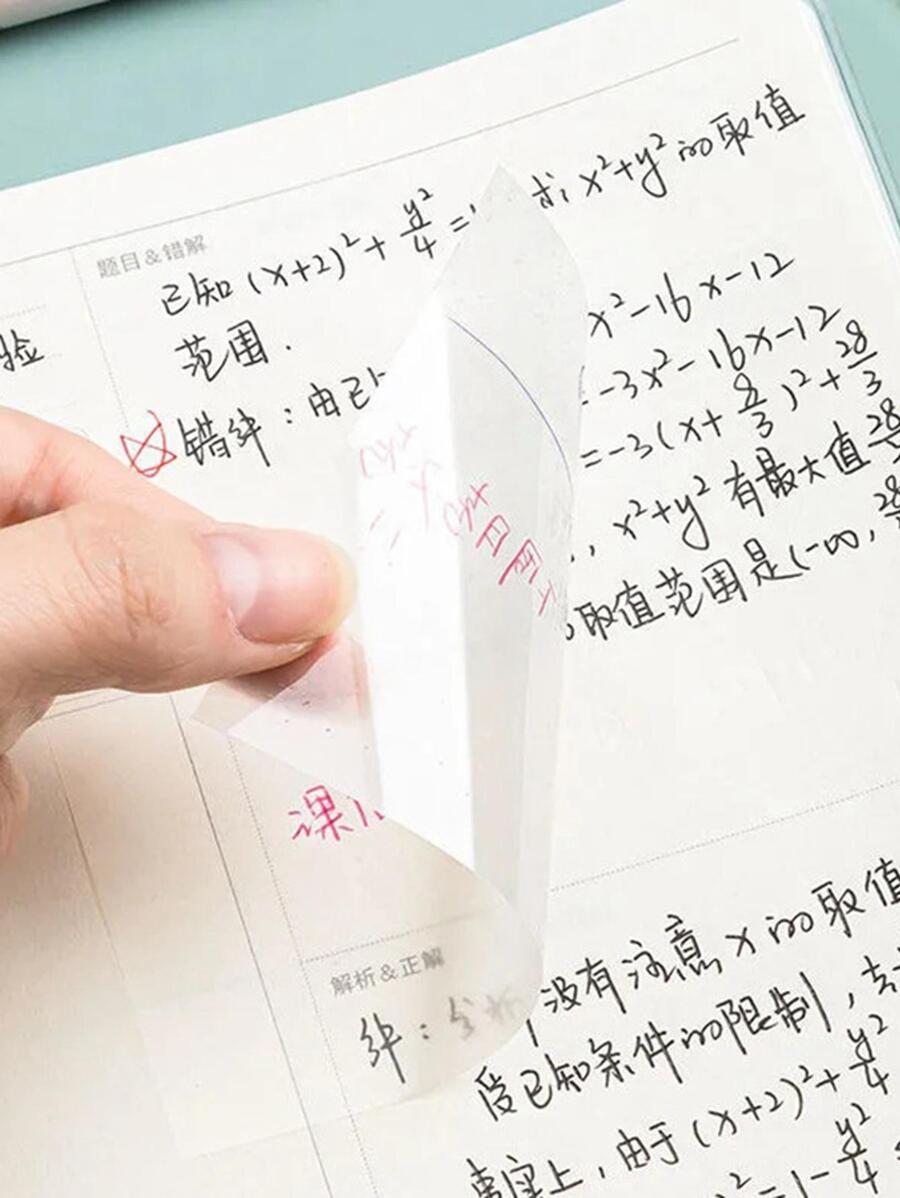 题目&错解
已知(x+2)²+y²/4= 求x²+y²的取值
范围.
验
错解:由已 x²-16x-12
=-3x²-16x-12
=-3(x+8/3)²+28/3
x²+y²有最大值28
取值范围是(-∞,28
课
解析&正解
解:分析 没有注意x的取值
受已知条件的限制,
事实上,由于(x+2)²+y²/4
²=1-y²/4